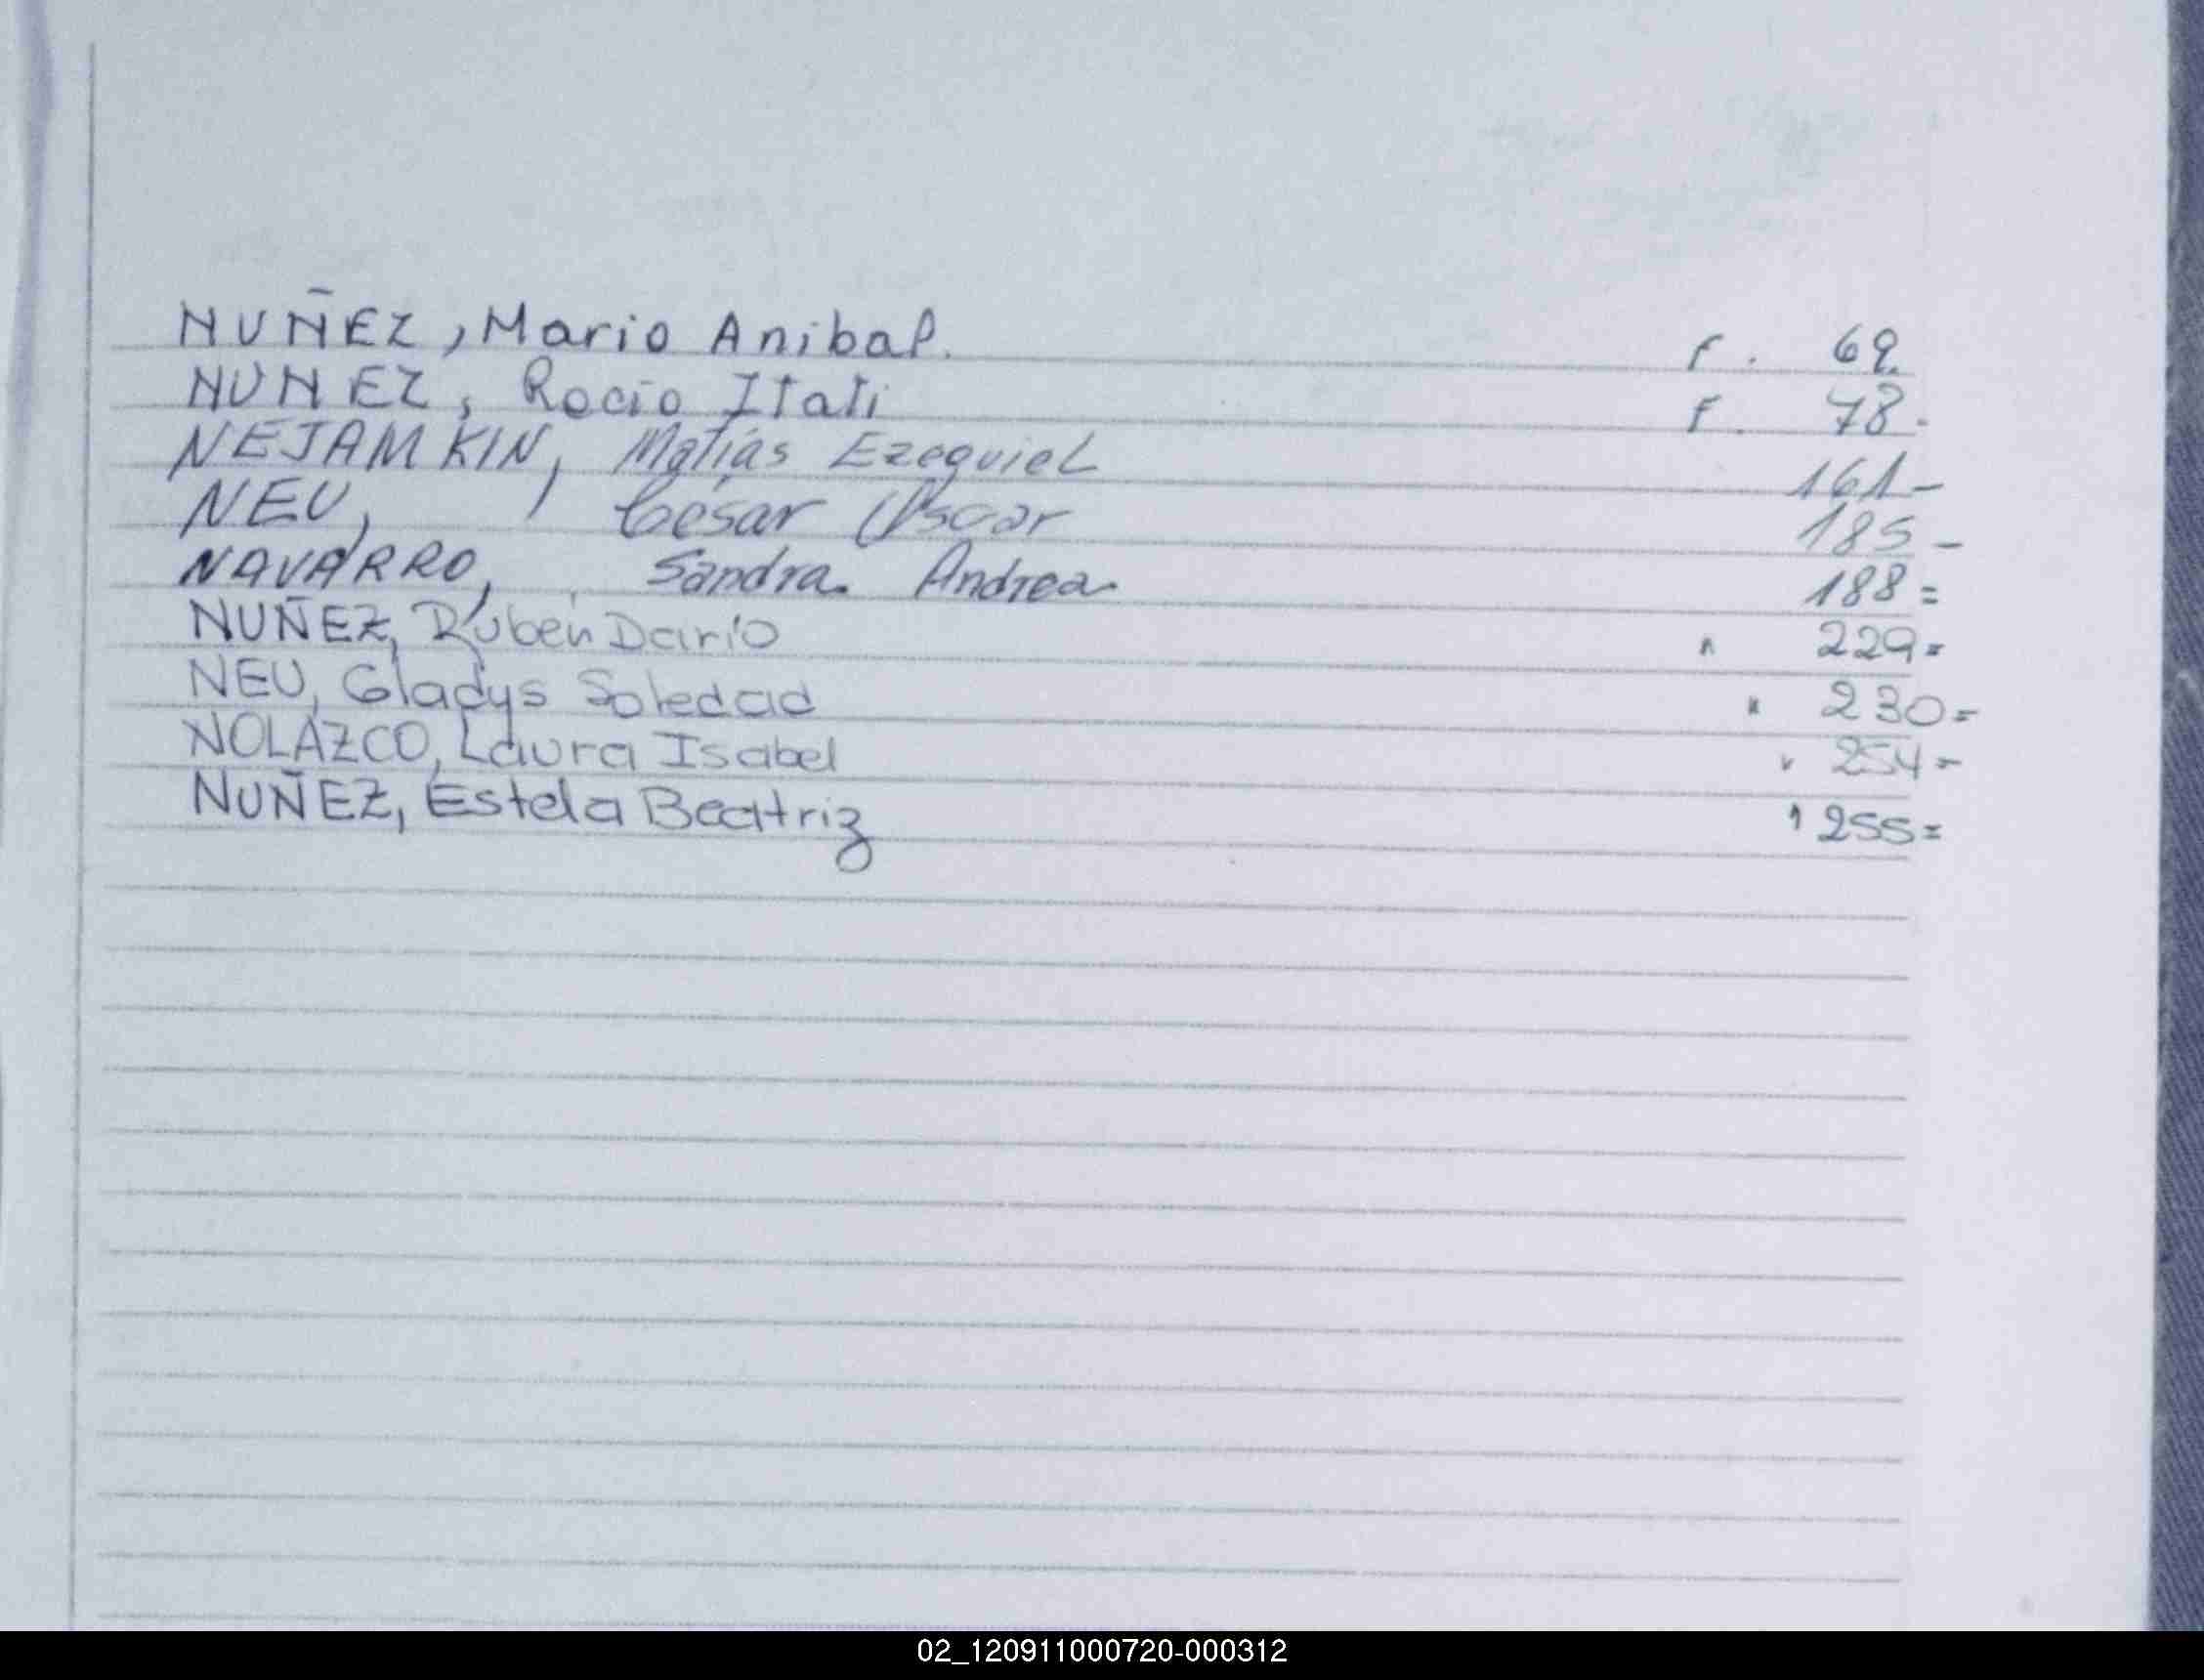 NUÑEZ, Mario Anibal. F. 69.
NUNEZ, Rocio Itati F. 78-
NEJAMKIN, Matías Ezequiel 161-
NEU, César Oscar 185-
NAVARRO, Sandra Andrea 188=
NUÑEZ, Rubén Darío " 229=
NEU, Gladys Soledad " 230=
NOLAZCO, Laura Isabel " 254=
NUÑEZ, Estela Beatriz " 255=
02_120911000720-000312